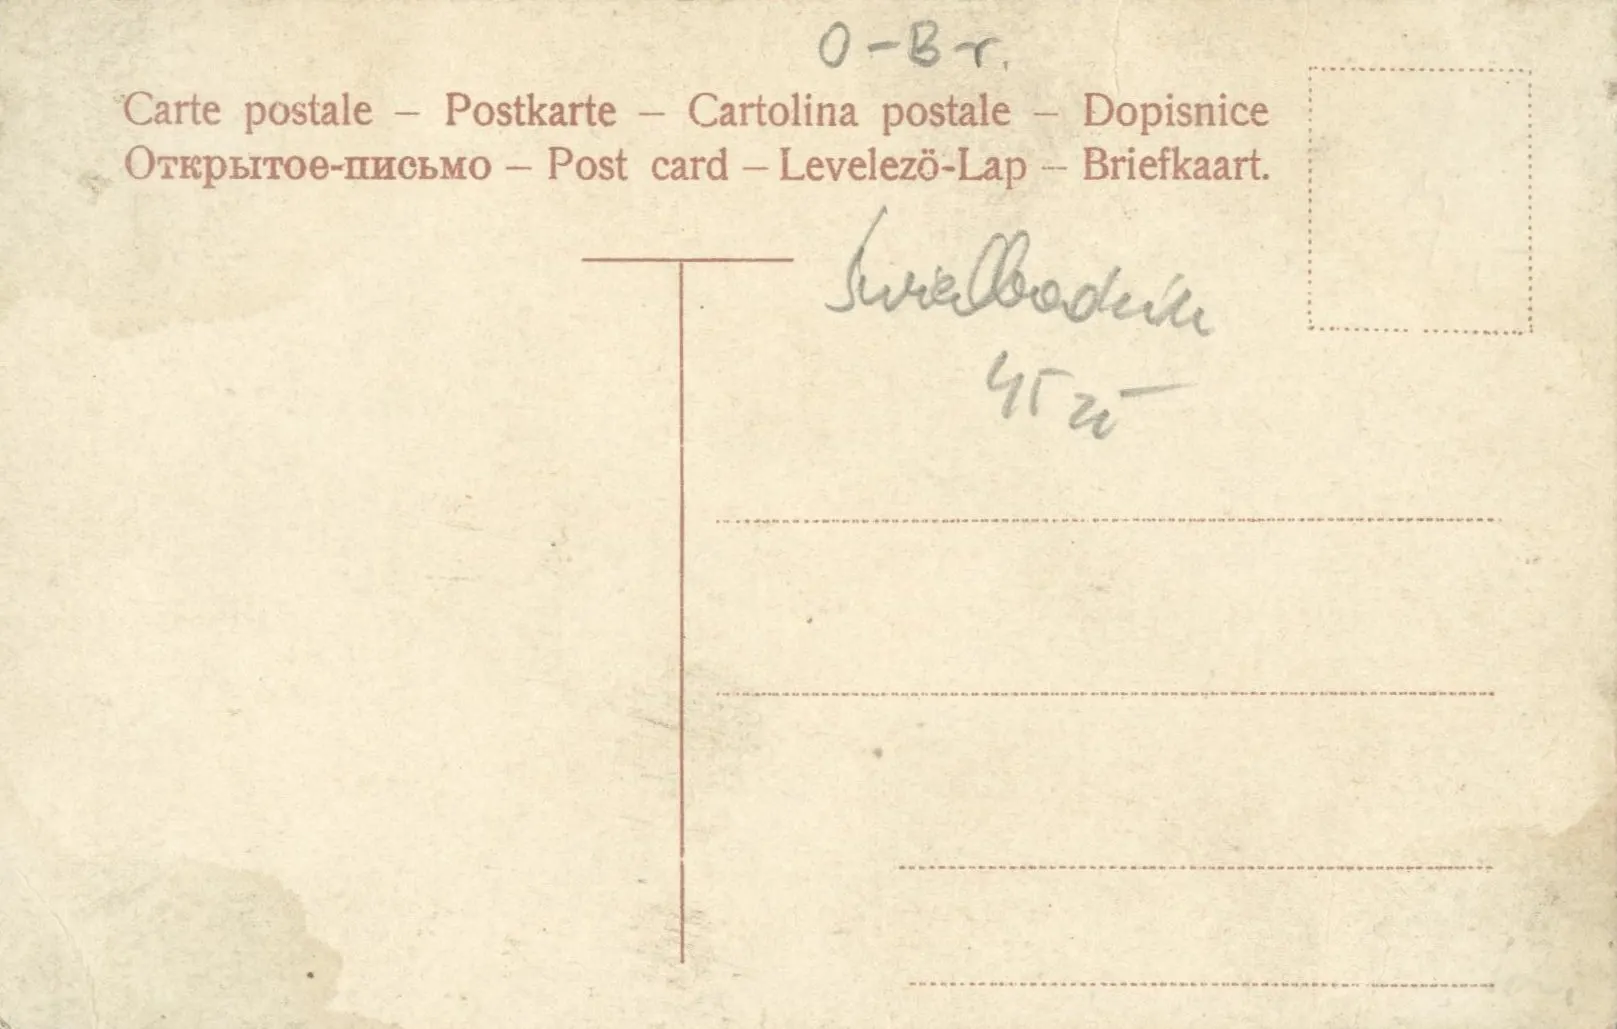 O-Br.
Carte postale – Postkarte – Cartolina postale – Dopisnice
Открытое-письмо – Post card – Levelezö-Lap – Briefkaart.
45 zł